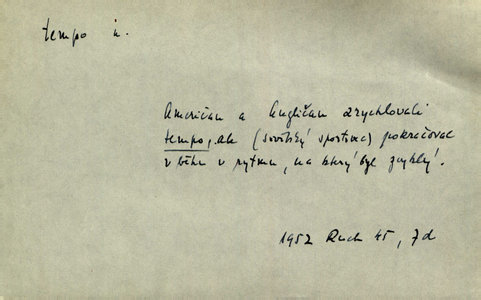 tempo n.
Američan a Angličan zrychlovali
tempo, ale (sovětský sportovec) pokračoval
v běhu v rytmu, na který byl zvyklý.
1952 Ruch 45, 7d